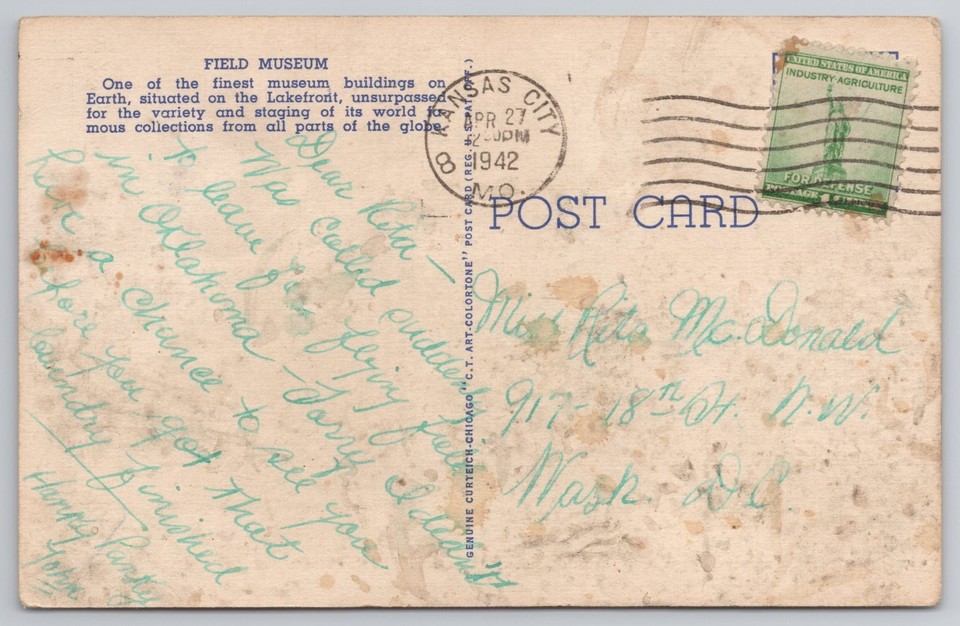 FIELD MUSEUM
One of the finest museum buildings on
Earth, situated on the Lakefront, unsurpassed
for the variety and staging of its world fa-
mous collections from all parts of the globe.
KANSAS CITY
APR 27
2 30 PM
1942
MO.
8
UNITED STATES OF AMERICA
INDUSTRY·AGRICULTURE
FOR DEFENSE
POST CARD
GENUINE CURTEICH-CHICAGO "C.T. ART-COLORTONE" POST CARD (REG. U.S. PAT. OFF.)
Dear Rita —
Was called suddenly
to leave for flying field
in Oklahoma — Sorry I didn't
have a chance to see you
before you got that
laundry finished
Hurry
Miss Rita McDonald
917 - 18th St. N.W.
Wash. D.C.